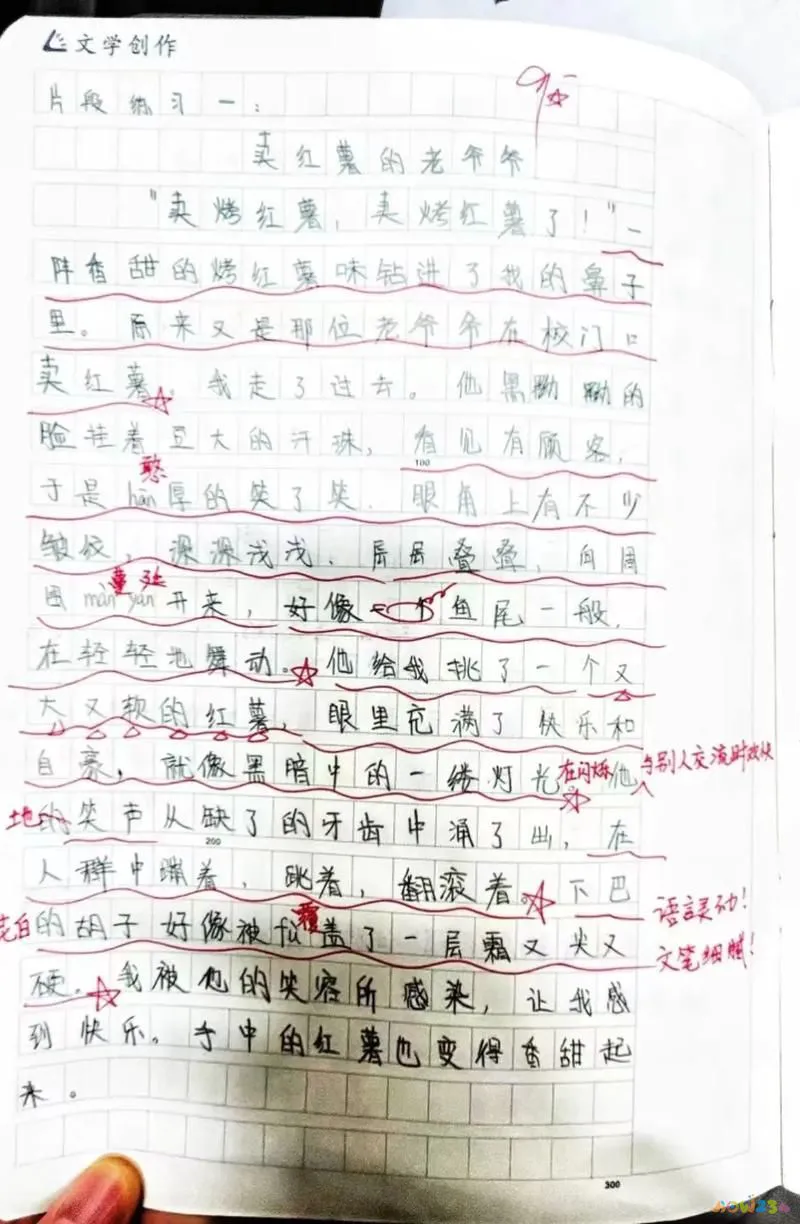 文学创作
片段练习一:
9
卖红薯的老爷爷
"卖烤红薯,卖烤红薯了!"一
阵香甜的烤红薯味钻进了我的鼻子
里。原来又是那位老爷爷在校门口
卖红薯。我走了过去。他黑黝黝的
脸挂着豆大的汗珠,看见有顾客,
100
憨
于是hān厚的笑了笑,眼角上有不少
皱纹,深深浅浅,层层叠叠,向周
蔓延
围màn yán开来,好像一个鱼尾一般,
在轻轻地舞动。他给我挑了一个又
大又软的红薯,眼里充满了快乐和
自豪,就像黑暗中的一缕灯光在闪烁他与别人交流时欢快
地的笑声从缺了的牙齿中涌了出,在
200
人群中蹦着,跳着,翻滚着。下巴
语言灵动!
覆
花白的胡子好像被fù盖了一层霜又尖又
文笔细腻!
硬。我被他的笑容所感染,让我感
到快乐。手中的红薯也变得香甜起
来。
300